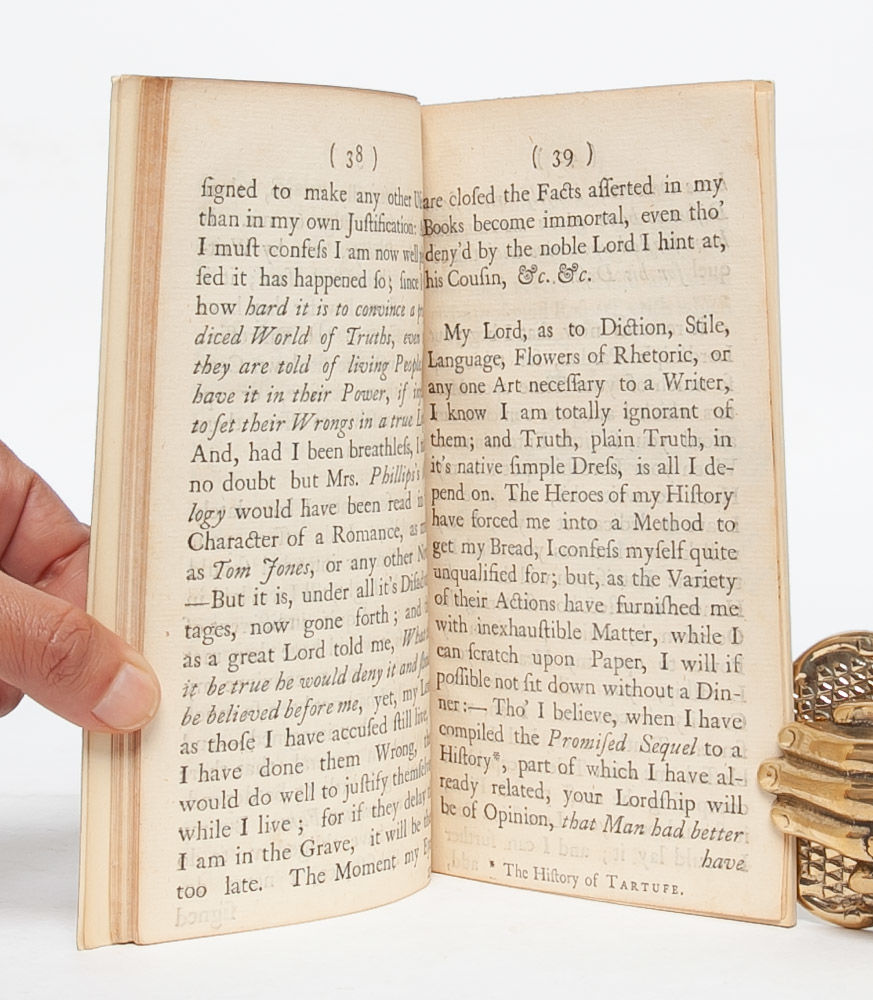 ( 38 )
ſigned to make any other
than in my own Juſtification:
I muſt confeſs I am now well
ſed it has happened ſo; ſince
how hard it is to convince a
diced World of Truths, even
they are told of living People
have it in their Power, if
to ſet their Wrongs in a true
And, had I been breathleſs, I
no doubt but Mrs. Phillips's
logy would have been read in
Character of a Romance, as
as Tom Jones, or any other
—But it is, under all it's
tages, now gone forth; and
as a great Lord told me,
it be true he would deny it and
be believed before me, yet, my
as thoſe I have accuſed ſtill live,
I have done them Wrong,
would do well to juſtify
while I live; for if they delay
I am in the Grave, it will be
too late. The Moment my
( 39 )
are cloſed the Facts aſſerted in my
Books become immortal, even tho'
deny'd by the noble Lord I hint at,
his Couſin, &c. &c.
My Lord, as to Diction, Stile,
Language, Flowers of Rhetoric, or
any one Art neceſſary to a Writer,
I know I am totally ignorant of
them; and Truth, plain Truth, in
it's native ſimple Dreſs, is all I de-
pend on. The Heroes of my Hiſtory
have forced me into a Method to
get my Bread, I confeſs myſelf quite
unqualified for; but, as the Variety
of their Actions have furniſhed me
with inexhauſtible Matter, while I
can ſcratch upon Paper, I will if
poſſible not ſit down without a Din-
ner:— Tho' I believe, when I have
compiled the Promiſed Sequel to a
Hiſtory*, part of which I have al-
ready related, your Lordſhip will
be of Opinion, that Man had better
have
* The Hiſtory of TARTUFE.